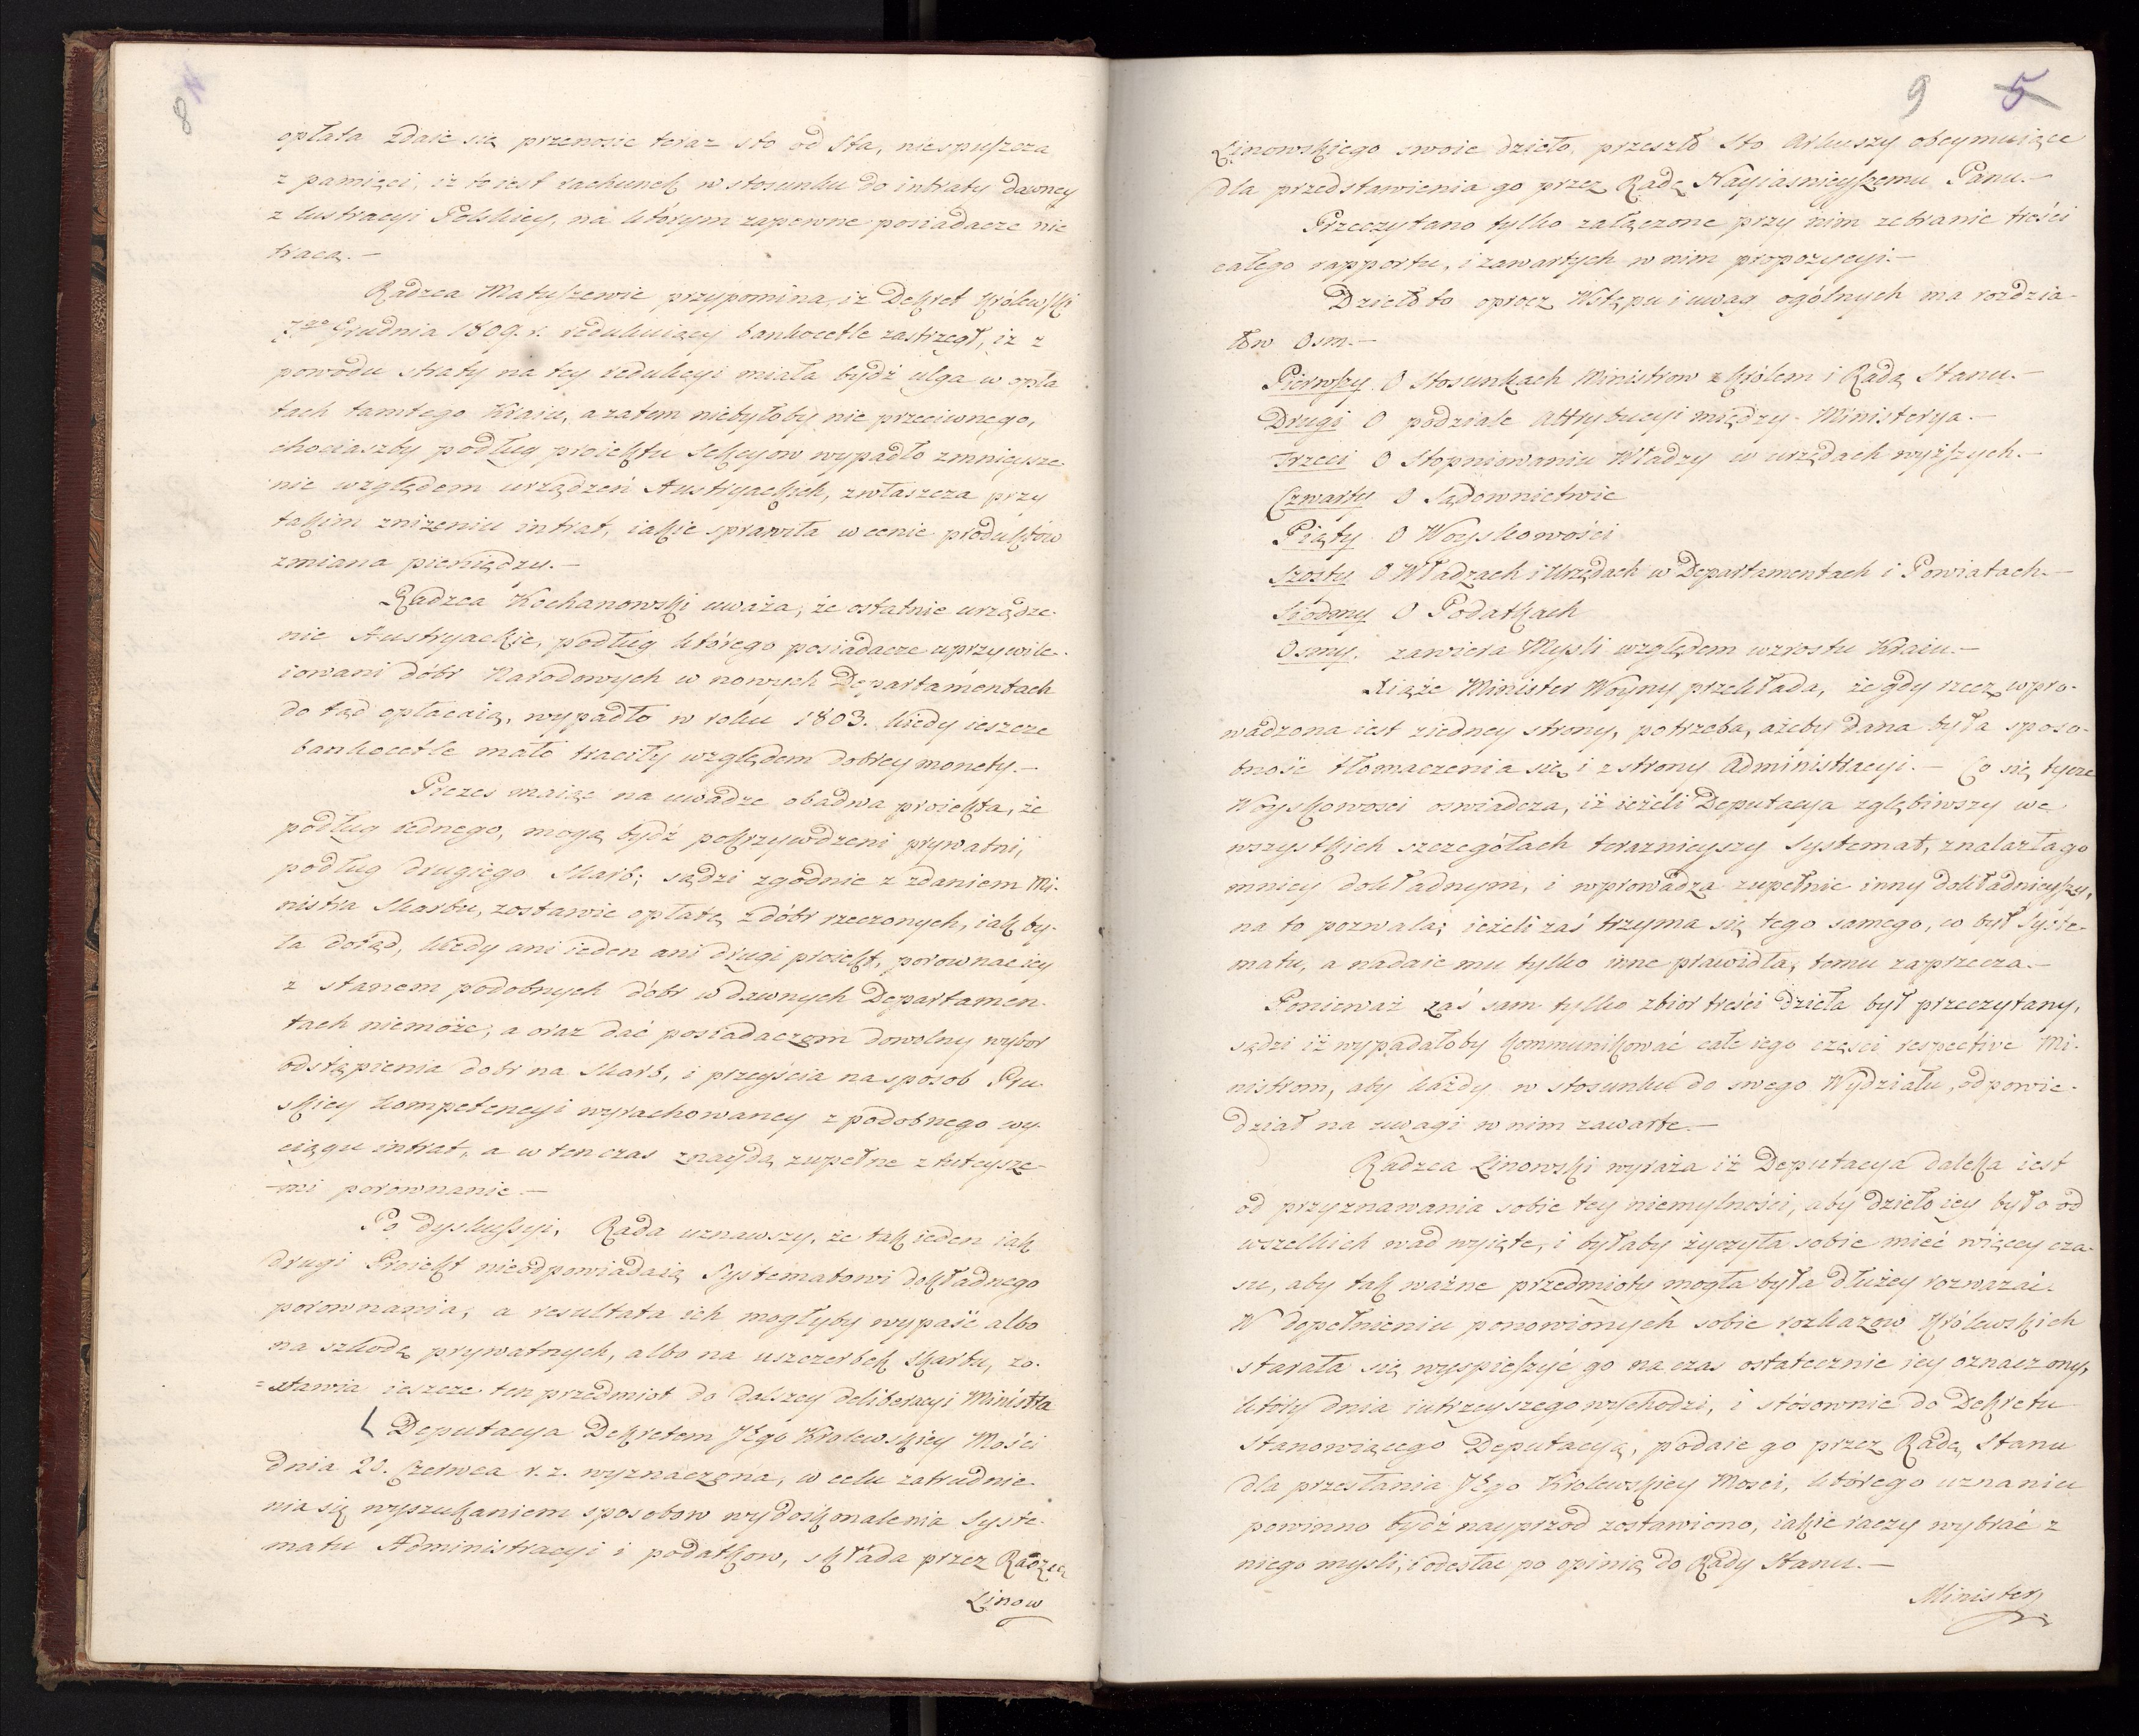 8
opłata zdaie się przenosić teraz sto od Sta, niespuszcza
z pamięci, iż to iest rachunek w stosunku do intraty dawney
z lustracyi Polskiey, na którym zapewne posiadacze nie
tracą.—
Radzca Matuszewic przypomina, iż Dekret Królewski
Grudnia 1809. r. redukuiący bankocetle zastrzegł, iż z
powodu straty na tey redukcyi miała bydź ulga w opła
tach tamtego Kraiu, a zatem niebyłoby nic przeciwnego,
chociaszby podług proiektu Sekcyow wypadło zmnieysze-
nie względem urządzeń Austryackich, zwłaszcza przy
takim zniżeniu intrat, iakie sprawiła w cenie produktów
zmiana pieniędzy.—
Radzca Kochanowski uważa, że ostatnie urządze-
nie Austryackie, podług którego posiadacze uprzywile-
iowani dóbr Narodowych w nowych Departamentach
do tąd opłacaią, wypadło w roku 1803. kiedy ieszcze
bankocetle mało traciły względem dobrey monety.—
Prezes maiąc na uwadze obadwa proiekta, że
podług iednego, mogą bydź pokrzywdzeni prywatni,
podług drugiego Skarb; sądzi zgodnie z zdaniem Mi-
nistra Skarbu, zostawić opłatę z dóbr rzeczonych, iak by-
ła dotąd, kiedy ani ieden ani drugi proiekt, porownać iey
z stanem podobnych dóbr w dawnych Departamen-
tach niemoże; a oraz dać posiadaczom dowolny wybor
odstąpienia dobr na Skarb, i przeyścia na sposob Pru
skiey kompetencyi wyrachowaney z podobnego wy-
ciągu intrat, a w ten czas znaydą zupełne z tuteysze-
mi porownanie.—
Po dyskussyi, Rada uznawszy, że tak ieden iak
drugi Proiekt nieodpowiadaią Systematowi dokładnego
porownania, a resultata ich mogłyby wypaść albo
na szkodę prywatnych, albo na uszczerbek Skarbu, zo-
=stawia ieszcze ten przedmiot do dalszey deliberacyi Ministra
Deputacya Dekretem JEgo Krolewskiey Mości
dnia 20. Czerwca r. z. wyznaczona, w celu zatrudnie-
nia się wyszukaniem sposobow wydoskonalenia Syste-
matu Administracyi i podatkow, składa przez Radzcę
Linow
9 5
Linowskiego swoie dzieło, przeszło Sto Arkuszy obeymuiące
dla przedstawienia go przez Radę Nayiasnieyszemu Panu.—
Przeczytano tylko załączone przy nim zebranie treści
całego rapportu, i zawartych w nim propozycyi.—
Dzieło to oprocz Wstępu i uwag ogólnych ma rozdzia-
łow Osm.—
Pierwszy O Stosunkach Ministrow z Królem i Radą Stanu.—
Drugi O podziale Attrybucyi między Ministerya.—
Trzeci O Stopniowaniu Władzy w urzędach wyższych.—
Czwarty O Sądownictwie
Piąty O Woyskowości
Szosty O Władzach i Urzędach w Departamentach i Powiatach.—
Siodmy O Podatkach
Osmy. zawiera Mysli względem wzrostu Kraiu.—
Xiąże Minister Woyny przekłada, że gdy rzecz wpro-
wadzona iest z iedney strony, potrzeba, ażeby dana była sposo-
bność tłomaczenia się i z strony Administracyi.— Co się tycze
Woyskowosci oswiadcza, iż ieżeli Deputacya zgłębiwszy we
wszystkich szczegółach teraznieyszy Systemat, znalazła go
mniey dokładnym, i wprowadza zupełnie inny dokładnieyszy,
na to pozwala; ieżeli zaś trzyma się tego samego, co był Syste-
matu, a nadaie mu tylko inne prawidła, temu zaprzecza.—
Ponieważ zaś sam tylko zbior treści dzieła był przeczytany,
sądzi iż wypadałoby kommunikować całe iego części respective Mi-
nistrom, aby każdy w stosunku do swego Wydziału, odpowie-
dział na uwagi w nim zawarte.—
Radzca Linowski wyraża iż Deputacya daleka iest
od przyznawania sobie tey niemylności, aby dzieło iey było od
wszelkich wad wyięte, i byłaby życzyła sobie mieć więcey cza-
su, aby tak ważne przedmioty mogła była dłużey rozważać.
W dopełnieniu ponowionych sobie rozkazow Królewskich
starała się wyspieszyć go na czas ostatecznie iey oznaczony,
który dnia iutrzeyszego wychodzi, i stósownie do Dekretu
stanowiącego Deputacyą, podaie go przez Radę Stanu
dla przesłania JEgo Krolewskiey Mosci, którego uznaniu
powinno bydź nayprzod zostawiono, iakie raczy wybrać z
niego mysli, i odesłać po opinią do Rady Stanu.—
Minister